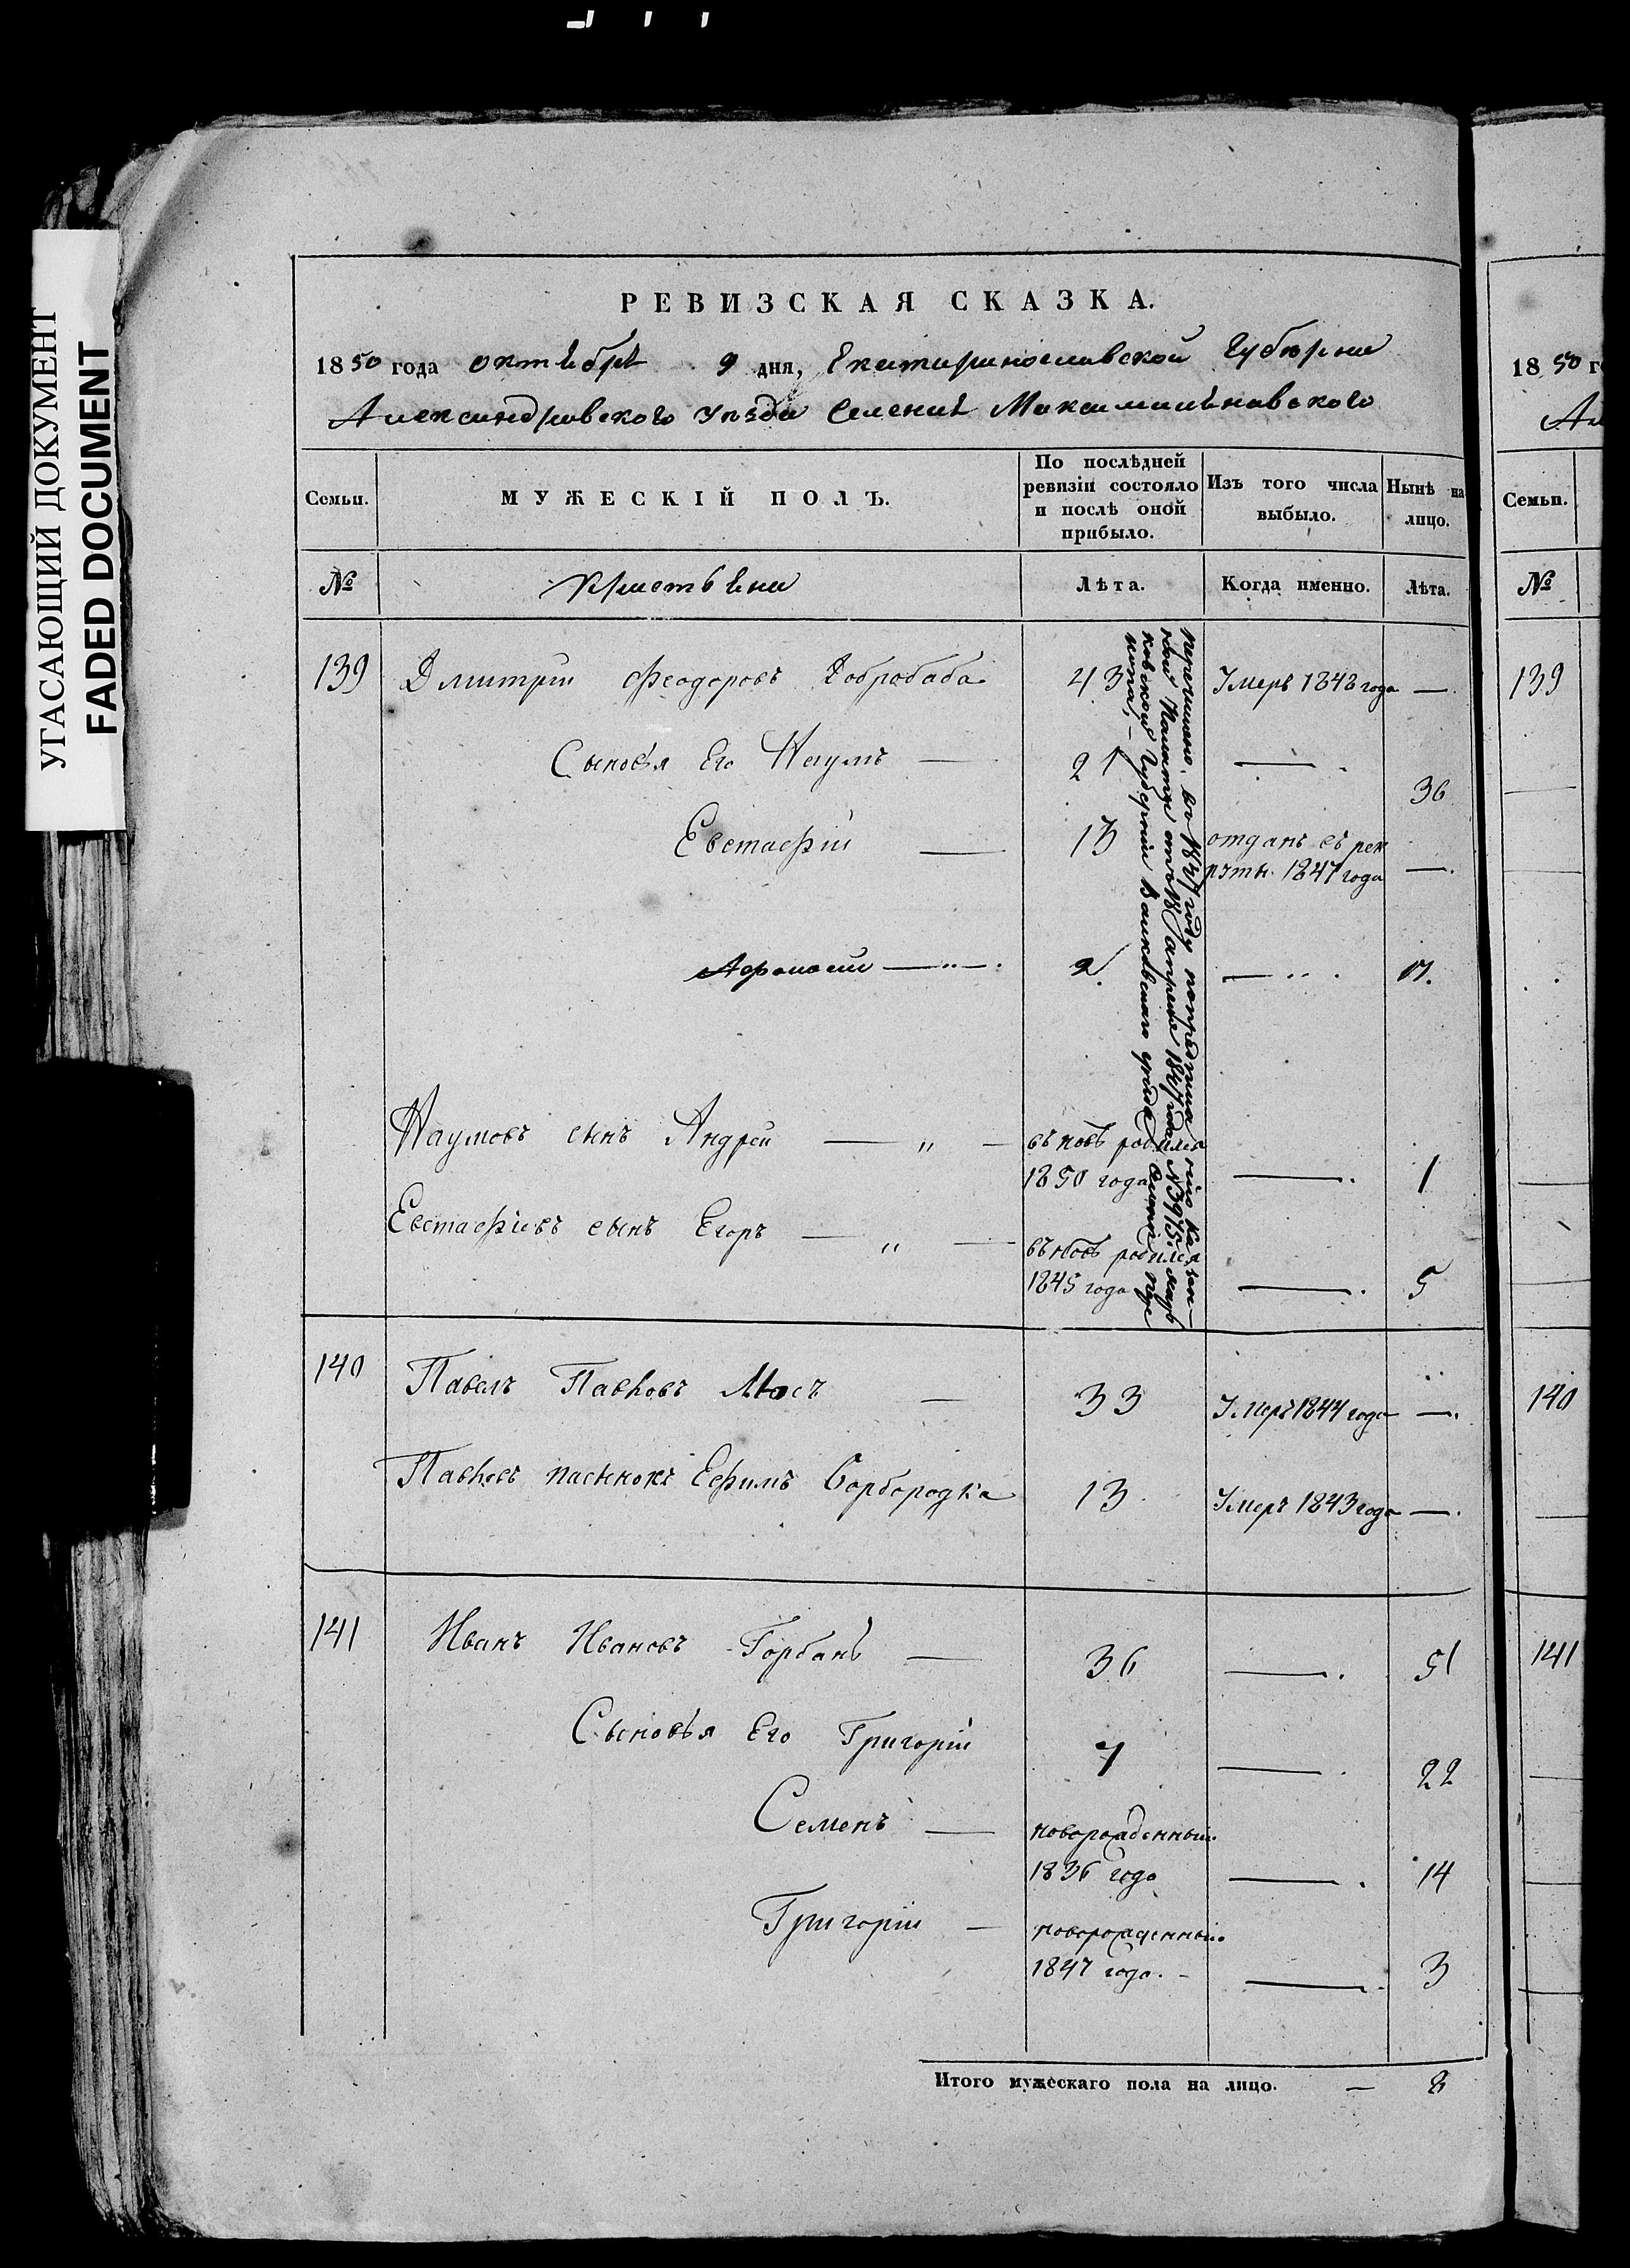 УГАСАЮЩИЙ ДОКУМЕНТ
FADED DOCUMENT
РЕВИЗСКАЯ СКАЗКА.
1850 года октября 9 дня, Екатеринославской Губернии
Александровского уезда Селения Максимильяновского
Семьи.
МУЖЕСКІЙ ПОЛЪ.
По послѣдней
ревизіи состояло
и послѣ оной
прибыло.
Изъ того числа
выбыло.
Нынѣ на
лицо.
№
Кристьяни
Лѣта.
Когда именно.
Лѣта.
139 Дмитрий Феодоровъ Добробаба 43 Умеръ 1848 года —.
Сыновья Его Наумъ — 21 — . 36
Евстафій — 13 отданъ въ рек
руты. 1847 года —.
Афонасий —"—. 2. —".. 17.
Наумовъ сынъ Андрей — " — въ новь родился
1850 года —. 1
Евстафіевъ сынъ Егоръ — " — въ новь родился
1845 года —. 5
140 Павелъ Павловъ Мосъ — 33 Умеръ 1844 года —.
Павловъ пасынокъ Ефимъ 13 Умеръ 1843 года —.
141 Иванъ Ивановъ Горбань — 36 —. 51
Сыновья Его Григорій 7 —. 22
Семенъ — новорожденный
1836 года —. 14
Григорій — новорожденный.
1847 года. — —. 3
Итого мужескаго пола на лицо. — 8
1850 г
Ал
Семьи.
№
139
140
141